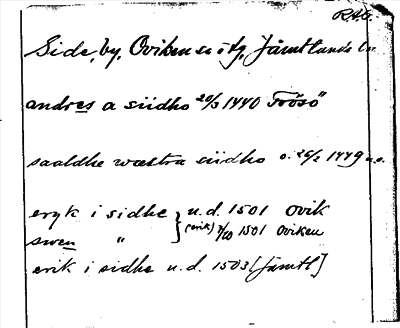 RAÄ.
Side, by, Ovikens sn o tg, Jämtlands län
andres a siidho 20/3 1440 Frösö
saaldhe wæstra siidho o. 26/2 1449 u.o.
eryk i sidhe } u.d. 1501 Ovik
swen " (erik) 7/20 1501 Oviken
erik i sidhe u.d. 1503 [Jämtl]